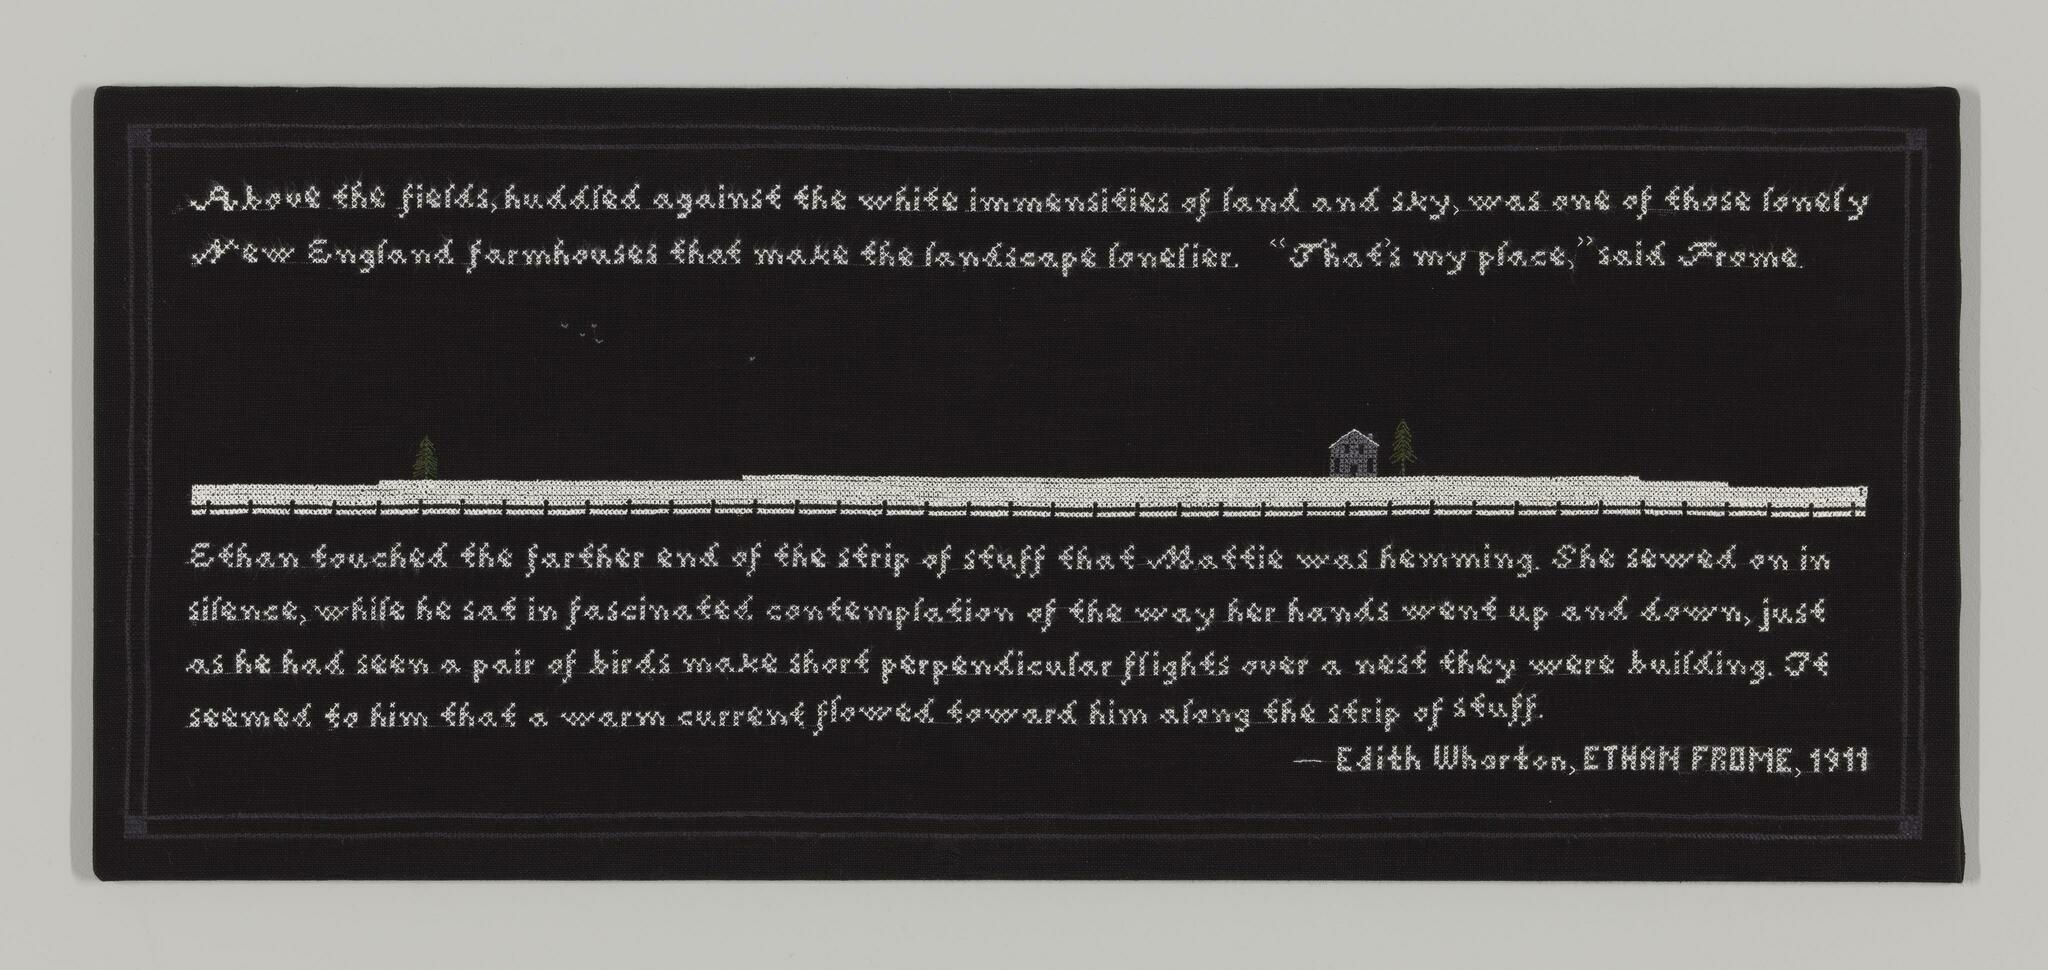 Above the fields, huddled against the white immensities of land and sky, was one of those lonely
New England farmhouses that make the landscape lonelier. “That's my place,” said Frome.
Ethan touched the farther end of the strip of stuff that Mattie was hemming. She sewed on in
silence, while he sat in fascinated contemplation of the way her hands went up and down, just
as he had seen a pair of birds make short perpendicular flights over a nest they were building. It
seemed to him that a warm current flowed toward him along the strip of stuff.
— Edith Wharton, ETHAN FROME, 1911